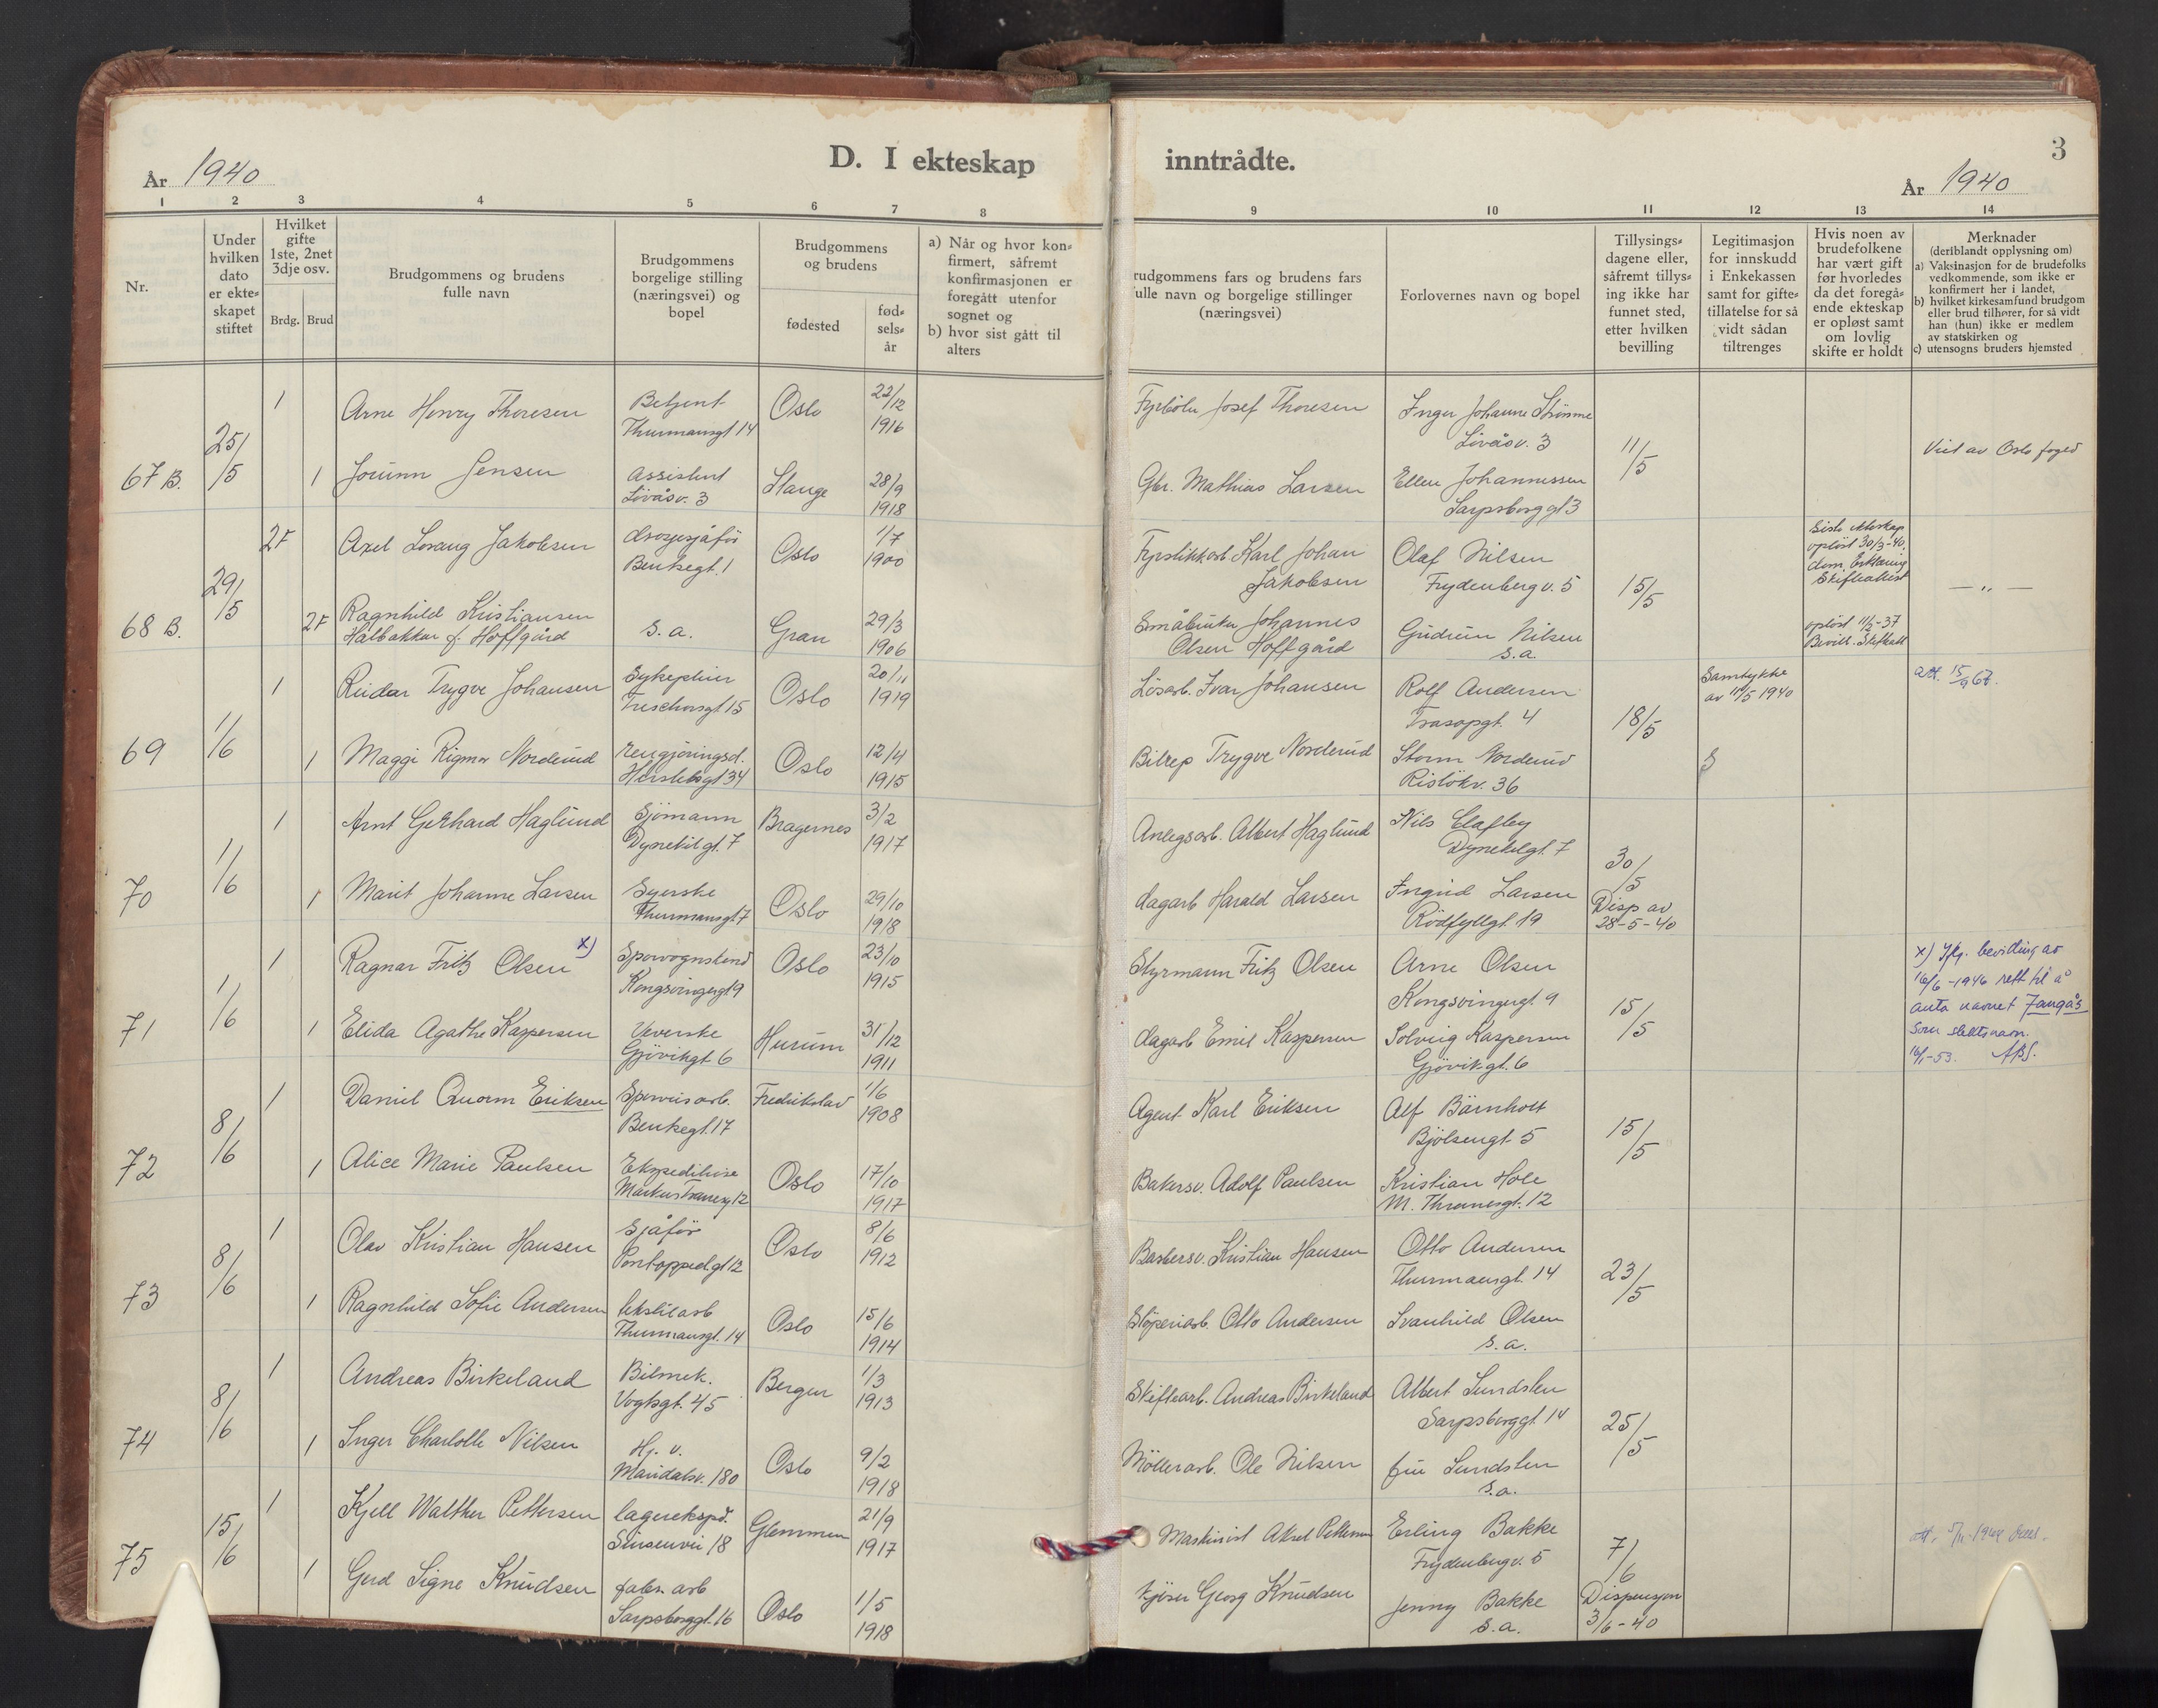 D. I ekteskap inntrådte.
3
År 1940
År 1940
1 2 3 4 5 6 7 8 9 10 11 12 13 14
Nr.
Under hvilken dato er ekte- skapet stiftet
Hvilket gifte 1ste, 2net 3dje osv.
Brdg. Brud
Brudgommens og brudens fulle navn
Brudgommens borgelige stilling (næringsvei) og bopel
Brudgommens og brudens
fødested
fød- sels- år
a) Når og hvor kon- firmert, såfremt konfirmasjonen er foregått utenfor sognet og
b) hvor sist gått til alters
rudgommens fars og brudens fars
ulle navn og borgelige stillinger (næringsvei)
Forlovernes navn og bopel
Tillysings- dagene eller, såfremt tillys- ing ikke har funnet sted, etter hvilken bevilling
Legitimasjon for innskudd i Enkekassen samt for gifte- tillatelse for så vidt sådan tiltrenges
Hvis noen av brudefolkene har vært gift før hvorledes da det foregå- ende ekteskap er opløst samt om lovlig skifte er holdt
Merknader
(deriblandt opplysning om)
a) Vaksinasjon for de brudefolks vedkommende, som ikke er konfirmert her i landet,
b) hvilket kirkesamfund brudgom eller brud tilhører, for så vidt han (hun) ikke er medlem av statskirken og
c) utensogns bruders hjemsted
67 B. 25/5
1 Arne Henry Thoresen Betjent Thurmannsgt 14 Oslo 22/12 1916 Josef Thoresen Inger Johanne Strømme Lovåsv. 3
11/5
Viet av Oslo foged
1 Jorunn Jensen Assistent Lovåsv. 3 Stange 28/9 1918 Gbr. Mathias Larsen Ellen Johannessen Sarpsborggt 3
68 B. 29/5
2F Axel Lorang Jakobsen drosjesjåfør Bentsegt. 1 Oslo 1/7 1900 Fyrstikkarb. Karl Johan Jakobsen Olaf Nilsen Frydenbergv. 5
15/5
Siste ekteskap opløst 30/3-40, dom. Erklæring Skifteattest
— " —
2F Ragnhild Kristiansen Halbakkar f. Hoffgård s. a. Gran 29/3 1906 Småbruker Johannes Olsen Hoffgård Gudrun Nilsen s. a.
opløst 11/2-37 Bevill. Skifteatt
69 1/6
1 Reidar Trygve Johansen Sykepleier Treschowsgt 15 Oslo 20/11 1919 Løsarb. Ivar Johansen Rolf Andersen Trasopgt. 4
18/5
Samtykke av 11/5 1940
att. 15/9 67.
1 Maggi Rigmor Norderud rengjøringsd. Herslebsgt 34 Oslo 12/4 1915 Bilrep Trygve Norderud Storm Norderud Risløkv. 36
70 1/6
1 Arnt Gerhard Haglund Sjømann Dynekilgt. 7 Bragernes 3/2 1917 Anlegsarb. Albert Haglund Nils Dynekilgt. 7
30/5
Disp av 28-5-40
1 Marit Johanne Larsen Syerske Thurmannsgt 7 Oslo 29/10 1918 dagarb Harald Larsen Ingrid Larsen Rødfyllgt. 19
71 1/6
1 Ragnar Fritz Olsen x) Sporvognskond Kongsvingergt 9 Oslo 23/10 1915 Styrmann Fritz Olsen Arne Olsen Kongsvingergt. 9
15/5
x) Iflg. bevilling av 16/6-1946 rett til å anta navnet Zangås som slektsnavn. 16/1-53.
1 Elida Agathe Kaspersen Veverske Gjøvikgt. 6 Hurum 31/12 1911 dagarb Emil Kaspersen Solveig Kaspersen Gjøvikgt. 6
72 8/6
1 Daniel Quorm Eriksen Sporveisarb. Bentsegt. 17 Fredrikstad 1/6 1908 Agent Karl Eriksen Alf Bärnholt Bjølsengt. 5
15/5
1 Alice Marie Paulsen Ekspeditrise Markus Tranesg 12 Oslo 17/10 1917 Bakersv. Adolf Paulsen Kristian Hole M. Thranesgt. 12
73 8/6
1 Olav Kristian Hansen Sjåfør Pontoppid.gt 12 Oslo 8/6 1912 Barbersv. Kristian Hansen Otto Andersen Thurmansgt. 14
23/5
1 Ragnhild Sofie Andersen tekstilarb Thurmansgt. 14 Oslo 15/6 1914 Støperiarb. Otto Andersen Svanhild Olsen s. a.
74 8/6
1 Andreas Birkeland Bilmek. Vogtsgt. 45 Bergen 1/3 1913 Skiftearb. Andreas Birkeland Albert Sundslen Sarpsborggt. 14
25/5
1 Inger Charlotte Nilsen Hj. v. Maridalsv. 180 Oslo 9/2 1918 Møllerarb. Ole Nilsen fru Sundslen s. a.
75 15/6
1 Kjell Walther Pettersen lagerekspd. Sinsenvei 18 Glemmen 21/9 1917 Maskinist Aksel Pettersen Erling Bakke Frydenbergv. 5
7/6
Dispensasjon 3/6-40
1 Gerd Signe Knudsen fabr. arb Sarpsborggt. 16 Oslo 1/5 1918 Kjører Georg Knudsen Jenny Bakke s. a.